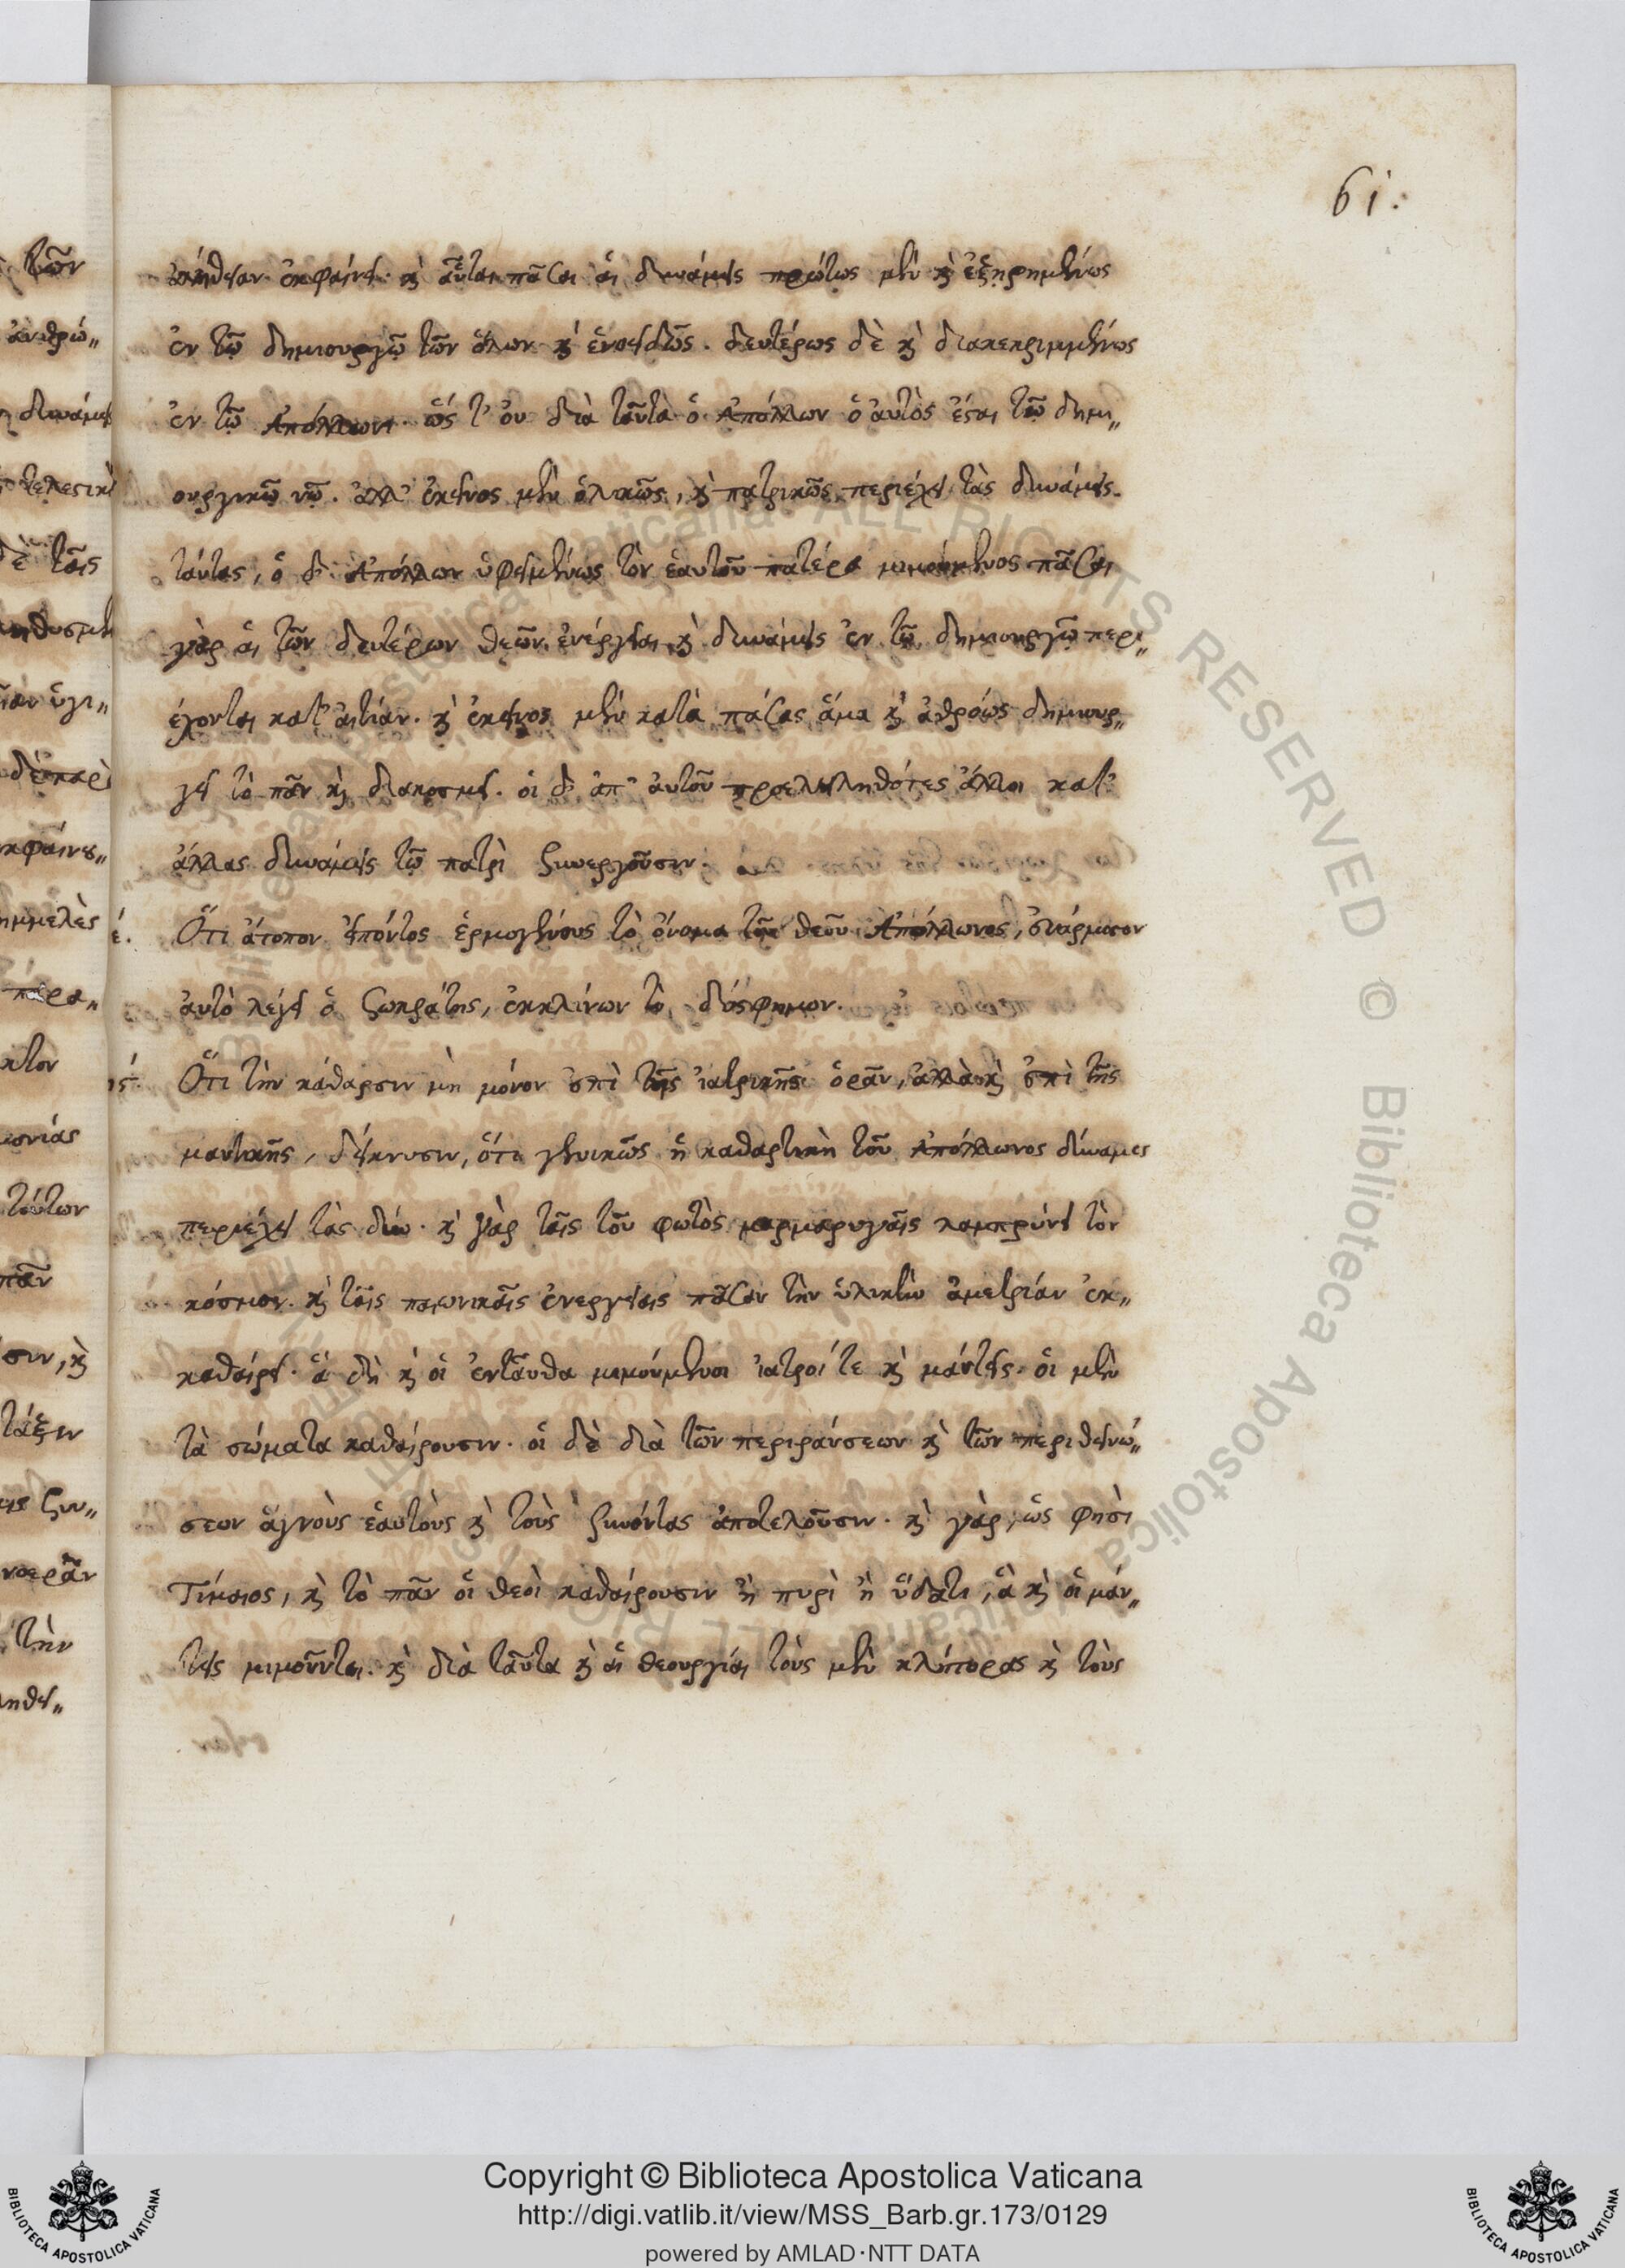 61.
ἀλήθειαν ἐκφαίνει. καὶ αὗται πᾶσαι αἱ δυνάμεις πρώτως μὲν καὶ ἐξῃρημένως
ἐν τῷ δημιουργῷ τῶν ὅλων καὶ ἑνοειδῶς. δευτέρως δὲ καὶ διακεκριμμένως
ἐν τῷ Ἀπόλλωνι. ὥς τ' οὐ διὰ ταῦτα ὁ Ἀπόλλων ὁ αὐτὸς ἔσται τῷ δημι„
ουργικῷ νῷ. ἀλλ' ἐκεῖνος μὲν ὁλικῶς, καὶ πατρικῶς περιέχει τὰς δυνάμεις
ταύτας, ὁ δ' Ἀπόλλων ὑφειμένως τὸν ἑαυτοῦ πατέρα μιμούμενος πᾶσαι
γὰρ αἱ τῶν δευτέρων θεῶν ἐνέργειαι καὶ δυνάμεις ἐν τῷ δημιουργῷ περι„
έχονται κατ' αἰτίαν. καὶ ἐκεῖνος μὲν κατὰ πάσας ἅμα καὶ ἀθρόως δημιουρ„
γεῖ τὸ πᾶν καὶ διακοσμεῖ. οἱ δ' ἀπ' αὐτοῦ προεληληθότες ἄλλοι κατ'
ἄλλας δυνάμεις τῷ πατρὶ συνεργοῦσιν.
έ. Ὅτι ἄτοπον εἰπόντος ἑρμογένους τὸ ὄνομα τοῦ θεοῦ Ἀπόλλωνος, εὐάρμοστον
αὐτὸ λέγει ὁ Σωκράτης, ἐκκλίνων τὸ δύσφημον.
ις. Ὅτι τὴν κάθαρσιν μὴ μόνον ἐπὶ τῆς ἰατρικῆς ὁρᾶν, ἀλλὰ καὶ ἐπὶ τῆς
μαντικῆς, δείκνυσιν, ὅτι γενικῶς ἡ καθαρτικὴ τοῦ Ἀπόλλωνος δύναμις
περιέχει τὰς δύω. καὶ γὰρ ταῖς τοῦ φωτὸς μαρμαρυγαῖς λαμπρύνει τὸν
κόσμον. καὶ ταῖς παιωνικαῖς ἐνεργείαις πᾶσαν τὴν ὑλικὴν ἀμετρίαν ἐκ„
καθαίρει. ἃ δὴ καὶ οἱ ἐνταῦθα μιμούμενοι ἰατροί τε καὶ μάντεις. οἱ μὲν
τὰ σώματα καθαίρουσιν. οἱ δὲ διὰ τῶν περιράνσεων καὶ τῶν περιθειώ„
σεων ἁγνοὺς ἑαυτοὺς καὶ τοὺς συνόντας ἀποτελοῦσιν. καὶ γάρ, ὥς φησὶ
Τίμαιος, καὶ τὸ πᾶν οἱ θεοὶ καθαίρουσιν ἢ πυρὶ ἢ ὕδατι, ἃ καὶ οἱ μάν„
τεις μιμοῦνται. καὶ διὰ ταῦτα καὶ αἱ θεουργίαι τοὺς μὲν κλήτορας καὶ τοὺς
Copyright © Biblioteca Apostolica Vaticana
http://digi.vatlib.it/view/MSS_Barb.gr.173/0129
powered by AMLAD·NTT DATA